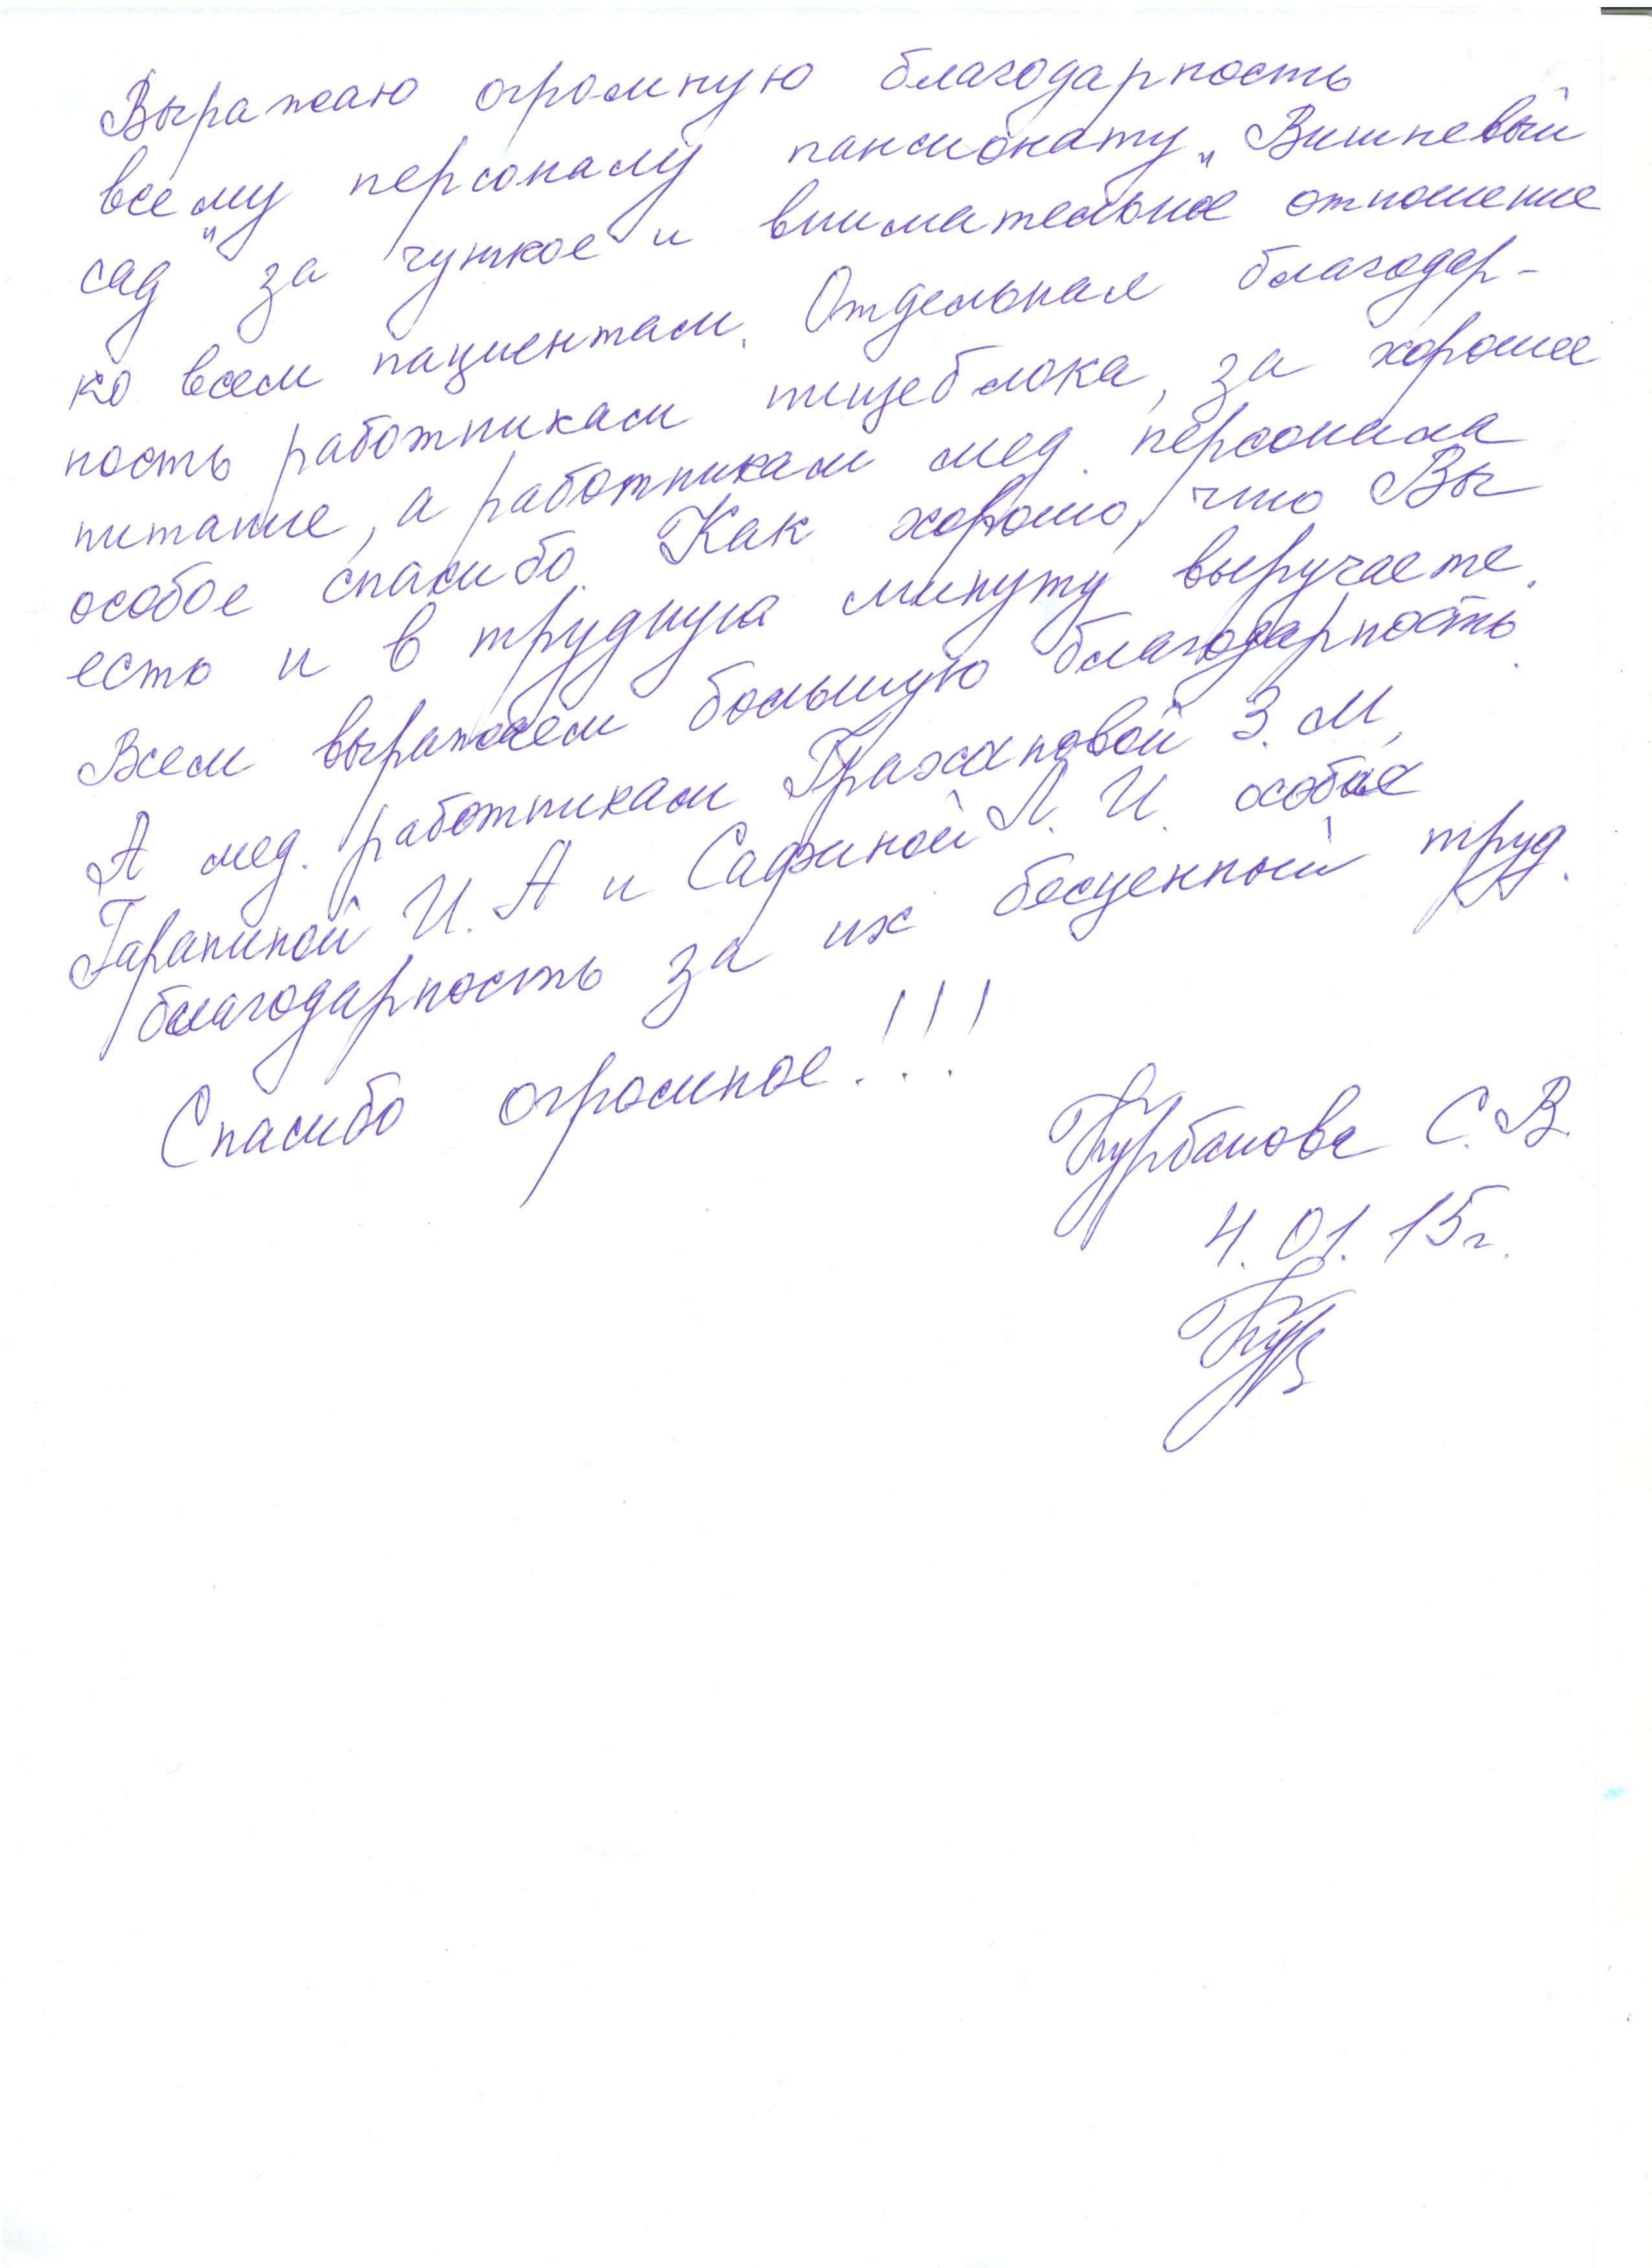 Выражаю огромную благодарность
всему персоналу пансионату „Вишневый
сад" за чуткое и внимательное отношение
ко всем пациентам. Отдельная благодар-
ность работникам пищеблока, за хорошее
питание, а работникам мед. персонала
особое спасибо. Как хорошо, что Вы
есть и в трудную минуту выручаете.
Всем выражаем большую благодарность.
А мед. работникам З. М,
Гараниной И. А и Сафиной Л. И. особая
благодарность за их бесценный труд.
Спасибо огромное!!!
Курбанова С. В.
4. 01. 15г.